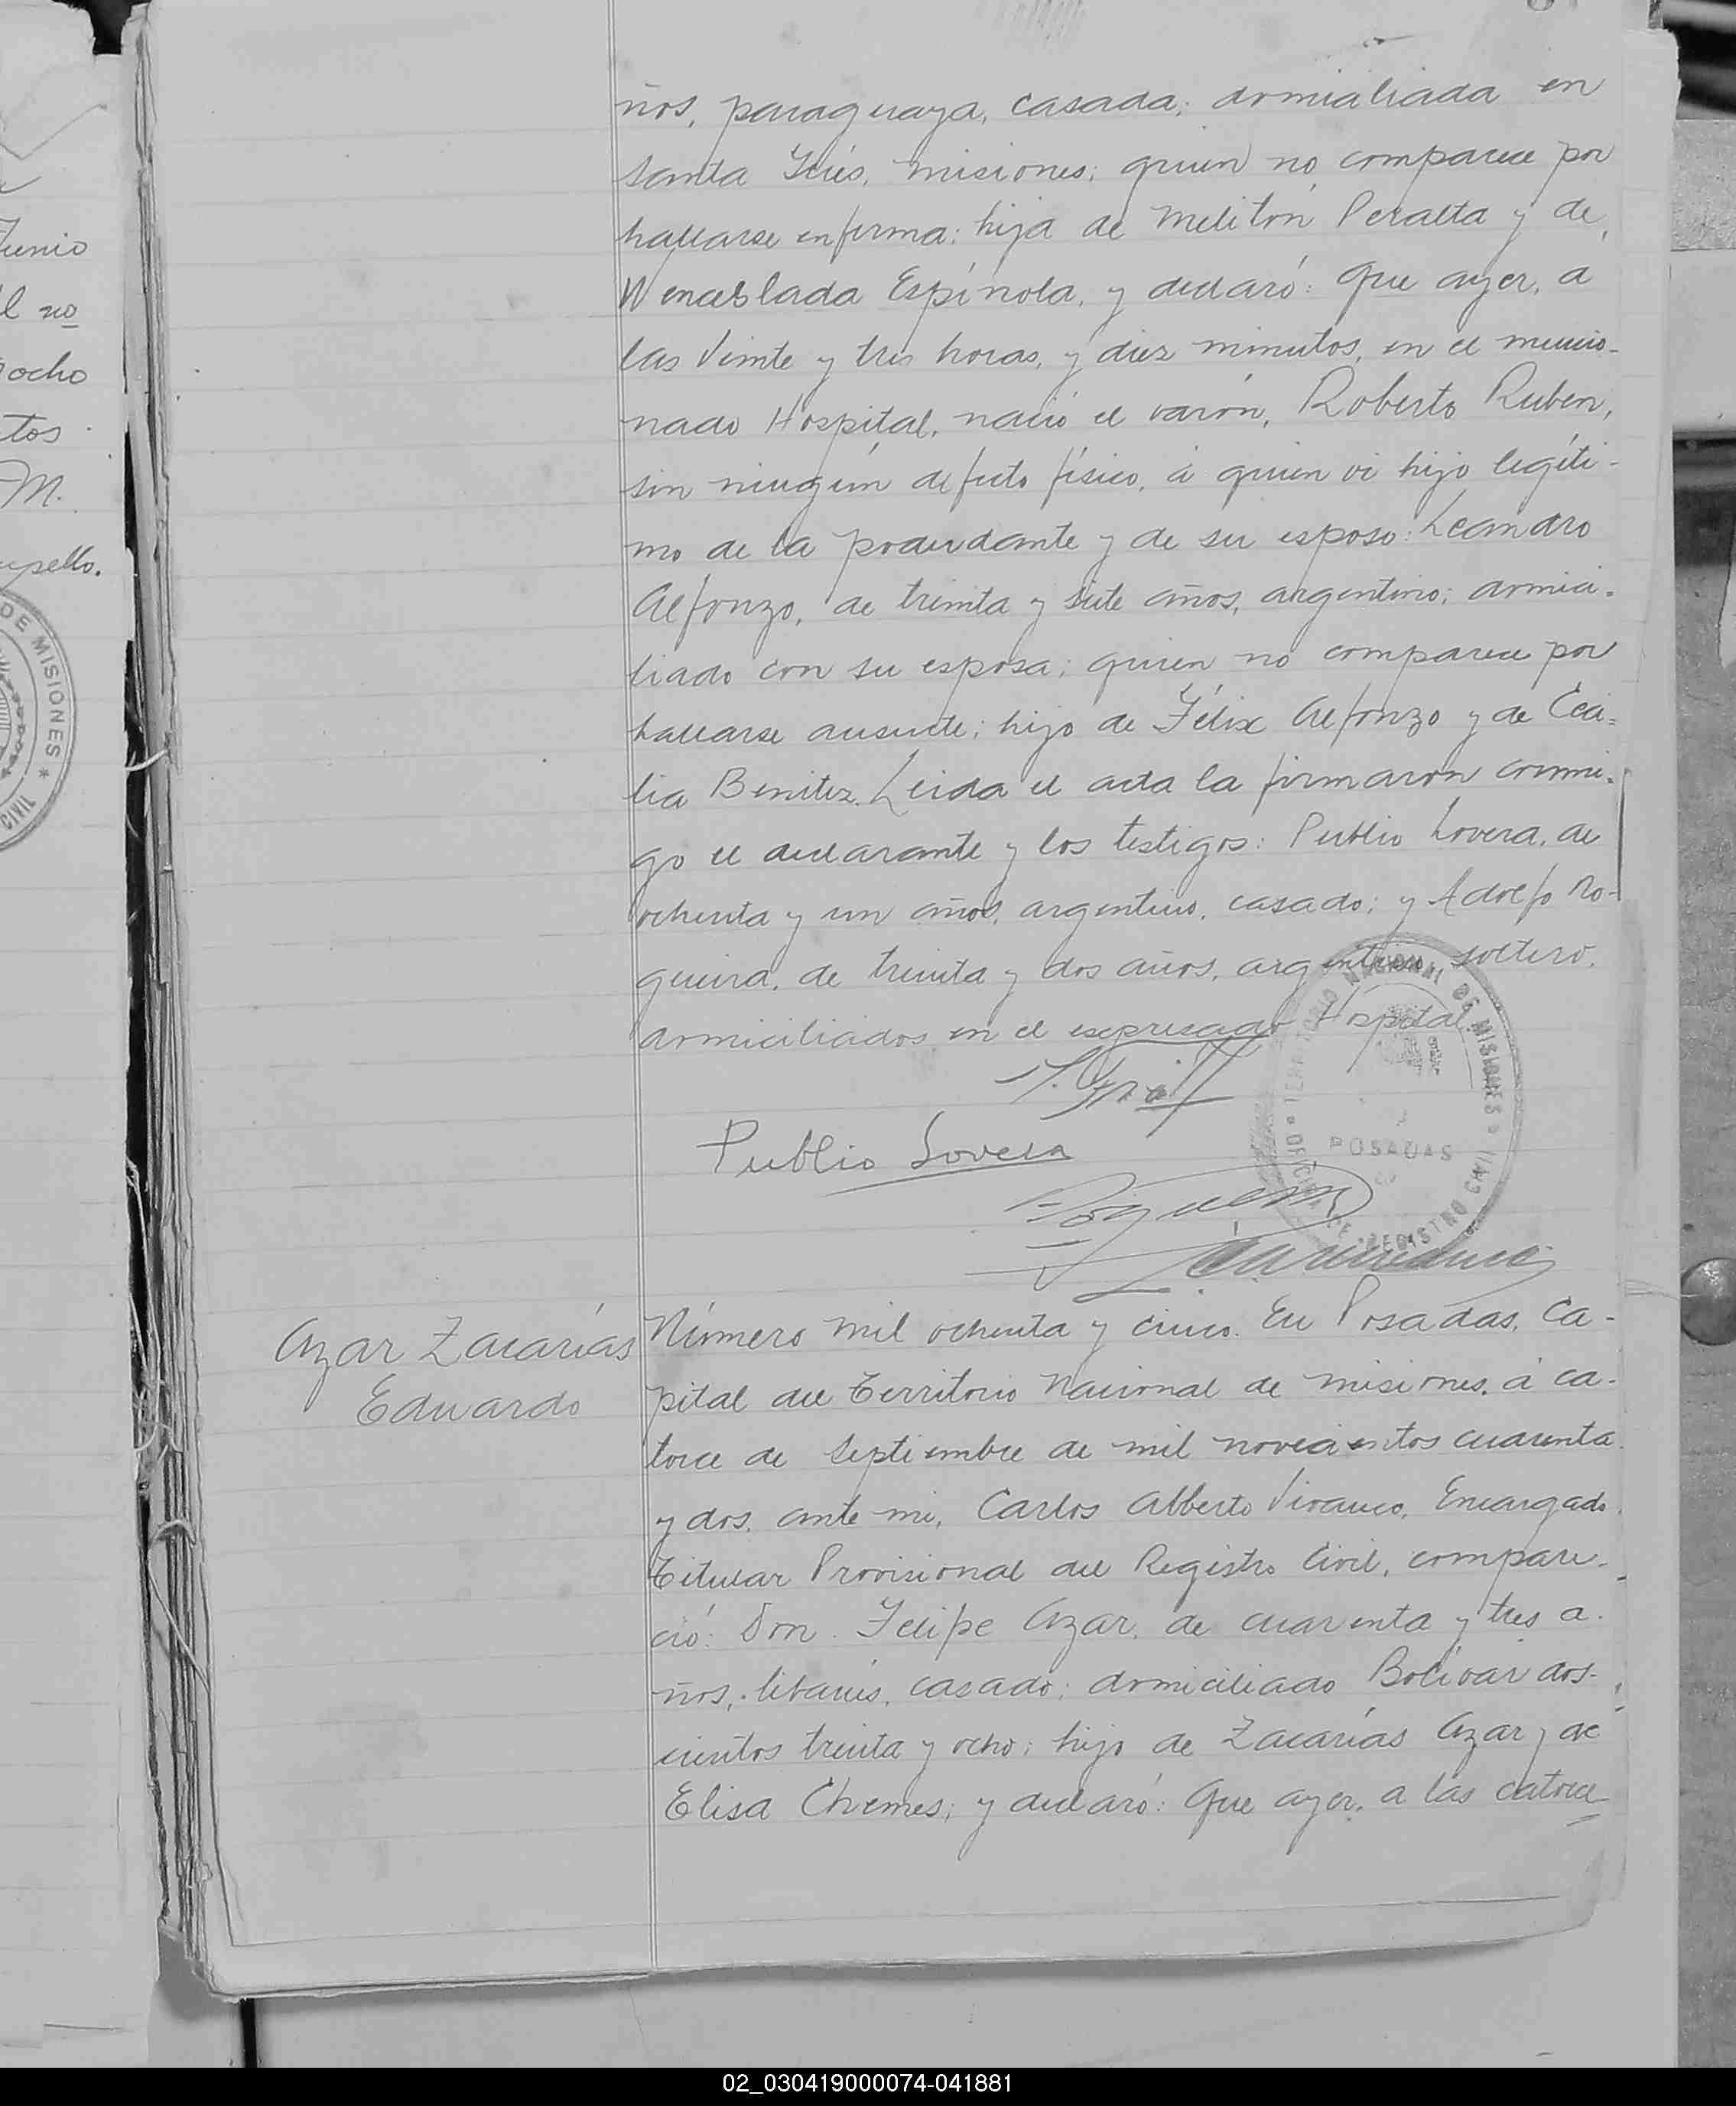 ños, paraguaya, casada; domiciliada en
Santa Inés, Misiones; quien no comparece por
hallarse enferma; hija de Melitón Peralta y de
Wenceslada Espínola, y declaró: Que ayer, a
las veinte y tres horas, y diez minutos, en el mencio-
nado Hospital, nació el varón, Roberto Ruben,
sin ningún defecto físico, á quien vi hijo legíti-
mo de la precedente y de su esposo: Leandro
Alfonzo, de treinta y siete años, argentino; domici-
liado con su esposa; quien no comparece por
hallarse ausente; hijo de Félix Alfonzo y de Ceci-
lia Benitez. Leida el acta la firmaron conmi-
go el declarante y los testigos: Publio Lovera, de
ochenta y un años, argentino, casado; y Adolfo No-
gueira, de treinta y dos años, argentino, soltero,
domiciliados en el expresado Hospital.
Publio Lovera
TERRITORIO NACIONAL DE MISIONES
POSADAS
OFICINA DE REGISTRO CIVIL
Azar Zacarías
Eduardo
Número mil ochenta y cinco. En Posadas, Ca-
pital del Territorio Nacional de Misiones, á ca-
torce de Septiembre de mil novecientos cuarenta
y dos, ante mi, Carlos Alberto Vivanco, Encargado
Titular Provisional del Registro Civil, compare-
ció: Don Felipe Azar, de cuarenta y tres a-
ños, libanés, casado; domiciliado Bolívar dos-
cientos treinta y ocho; hijo de Zacarías Azar y de
Elisa Chemes; y declaró: Que ayer, a las catorce
Junio
l no
ocho
tos
M.
pello.
DE MISIONES *
CIVIL
02_030419000074-041881